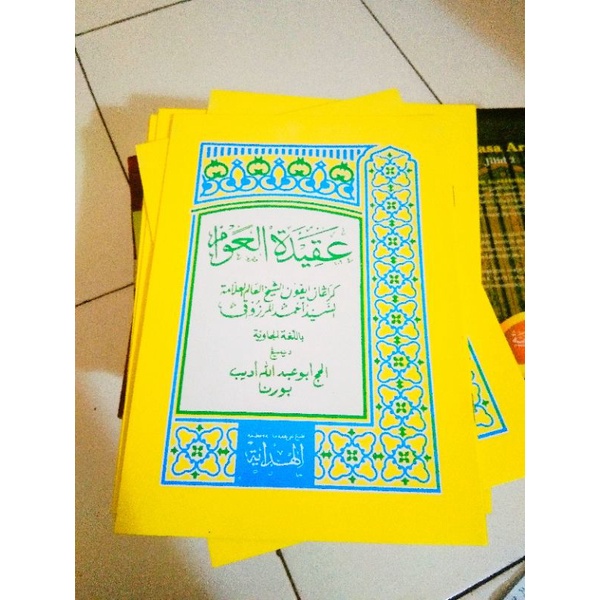 عقيدة العوام
كراڠان ايفون الشيخ العالم العلامة
السيد أحمد المرزوقي
باللغة الجاوية
ديسيڠ
الحج أبو عبد الله أديب
بورنا
الهداية
asa Ar
Jilid 2